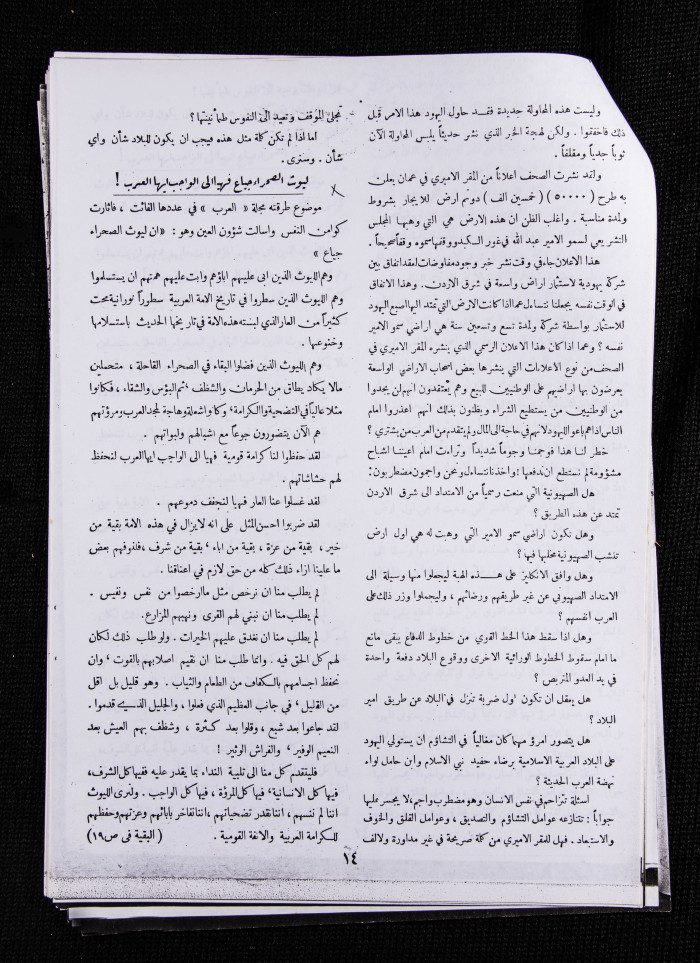 وليست هذه المحاولة جديدة فقد حاول اليهود هذا الامر قبل
ذلك فاخفقوا . ولكن لهجة الخبر الذي نشر حديثاً يلبس المحاولة الآن
ثوباً جدياً ومقلقاً .
ولقد نشرت الصحف اعلاناً من المقر الاميري في عمان يعلن
به طرح ( ٥٠٠٠٠ ) ( خمسين الف ) دونم ارض للايجار بشروط
ولمدة مناسبة . واغلب الظن ان هذه الارض هي التي وهبها المجلس
التشريعي لسمو الامير عبد الله في غور الكبد ووقفها سموه وقفاً صحيحاً .
هذا الاعلان جاء في وقت نشر خبر وجود مفاوضات لعقد اتفاق بين
شركة يهودية لاستثمار اراض واسعة في شرق الاردن. وهذا الاتفاق
في الوقت نفسه يجعلنا نتساءل عما اذا كانت الارض التي تمتد اليها اصبع اليهود
للاستثمار بواسطة شركة ولمدة تسع وتسعين سنة هي اراضي سمو الامير
نفسه ؟ وعما اذا كان هذا الاعلان الرسمي الذي ينشره المقر الاميري في
الصحف من نوع الاعلانات التي ينشرها بعض اصحاب الاراضي الواسعة
يعرضون بها اراضيهم على الوطنيين للبيع وهم يعتقدون انهم لن يجدوا
من الوطنيين من يستطيع الشراء ويظنون بذلك انهم اعذروا امام
الناس اذا هم باعوا لليهود لانهم في حاجة الى المال ولم يتقدم من العرب من يشتري ؟
خطر لنا هذا فوجمنا وجوماً شديداً وتراءت امام اعيننا اشباح
مشؤومة لم نستطع ان ندفعها ؛ واخذنا نتساءل ونحن واجمون مضطربون :
هل الصهيونية التي منعت رسمياً من الامتداد الى شرق الاردن
تمتد عن هذه الطريق ؟
وهل تكون اراضي سمو الامير التي وهبت له هي اول ارض
تنشب الصهيونية مخلبها فيها ؟
وهل وافق الانكليز على هذه الهبة ليجعلوا منها وسيلة الى
الامتداد الصهيوني عن غير طريقهم ورضائهم ، وليجعلوا وزر ذلك على
العرب انفسهم ؟
وهل اذا سقط هذا الخط القوي من خطوط الدفاع يبقى مانع
ما امام سقوط الخطوط الورائية الاخرى ووقوع البلاد دفعة واحدة
في يد العدو المتربص ؟
هل يعقل ان تكون اول ضربة تنزل في البلاد عن طريق امير
البلاد ؟
هل يتصور امرؤ مهما كان مغالياً في التشاؤم ان يستولي اليهود
على البلاد العربية الاسلامية برضاء حفيد نبي الاسلام وابن حامل لواء
نهضة العرب الحديثة ؟
اسئلة تتزاحم في نفس الانسان وهو مضطرب واجم لا يجسر عليها
جواباً : تتنازعه عوامل التشاؤم والتصديق ، وعوامل القلق والخوف
والاستبعاد . فهل للمقر الاميري من كلمة صريحة في غير مداورة ولا لف
تجلي الموقف وتعيد الى النفوس طمأنينتها ؟
اما اذا لم تكن كلمة مثل هذه فيجب ان يكون للبلاد شأن واي
شأن . وسنرى .
ليوث الصحراء جياع فهيا الى الواجب ايها العرب !
موضوع طرقته مجلة « العرب » في عددها الفائت ، فاثارت
كوامن النفس واسالت شؤون العين وهو : « ان ليوث الصحراء
جياع »
وهم الليوث الذين ابى عليهم اباؤهم وابت عليهم هممهم ان يستسلموا
وهم الليوث الذين سطروا في تاريخ الامة العربية سطوراً نورانية محت
كثيراً من العار الذي لبسته هذه الامة في تاريخها الحديث باستسلامها
وخنوعها .
وهم الليوث الذين فضلوا البقاء في الصحراء القاحلة ، متحملين
مالا يكاد يطاق من الحرمان والشظف ، ثم البؤس والشقاء ، فكانوا
مثلاً عالياً في التضحية والكرامة ، وكانوا شعلة وهاجة لمجد العرب ومرؤتهم
هم الآن يتضورون جوعاً مع اشبالهم ولبواتهم .
لقد حفظوا لنا كرامة قومية فهيا الى الواجب ايها العرب لنحفظ
لهم حشاشاتهم .
لقد غسلوا عنا العار فهيا لنجفف دموعهم .
لقد ضربوا احسن المثل على انه لايزال في هذه الامة بقية من
خير ، بقية من عزة ، بقية من اباء ، بقية من شرف ، فلنوفهم بعض
ما علينا ازاء ذلك كله من حق لازم في اعناقنا .
لم يطلب منا ان نرخص مثل ما ارخصوا من نفس ونفيس .
لم يطلب منا ان نبني لهم القرى ونهيهم المزارع.
لم يطلب منا ان نغدق عليهم الخيرات . ولو طلب ذلك لكان
لهم كل الحق فيه . وانما طلب منا ان نقيم اصلابهم بالقوت ، وان
نحفظ اجسامهم بالكفاف من الطعام والثياب . وهو قليل بل اقل
من القليل ، في جانب العظيم الذي فعلوا ، والجليل الذي قدموا .
لقد جاعوا بعد شبع ، وقلوا بعد كثرة ، وشظف بهم العيش بعد
النعيم الوفير ، والفراش الوثير !
فليتقدم كل منا الى تلبية النداء بما يقدر عليه ففيها كل الشرف،
فيها كل الانسانية ، فيها كل المروة ، فيها كل الواجب . ولنري الليوث
اننا لم ننسهم ، اننا نقدر تضحياتهم ، اننا نفاخر بابائهم وعزتهم وحفظهم
للكرامة العربية والانفة القومية . ( البقية في ص١٩ )
١٤